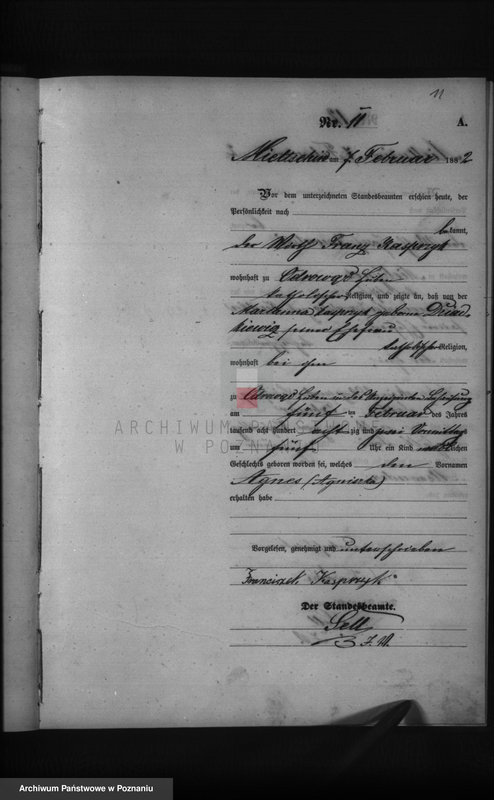 11
Nr. 11 A.
Mieltschin am 7. Februar 1882
Vor dem unterzeichneten Standesbeamten erschien heute, der
Persönlichkeit nach
bekannt,
der Wirth Franz Kasprzyk
wohnhaft zu
katholischer Religion, und zeigte an, daß von der
Marianna Kasprzyk geborne
seiner Ehefrau
katholischer Religion,
wohnhaft bei ihm
zu
am fünf ten Februar des Jahres
tausend acht hundert acht zig und zwei Vormittags
um fünf Uhr ein Kind weiblichen
Geschlechts geboren worden sei, welches den Vornamen
Agnes (Agniszka)
erhalten habe
Vorgelesen, genehmigt und unterschrieben
Franciszek Kasprzyk
Der Standesbeamte.
Sell
ARCHIWUM PAŃSTWOWE
W POZNANIU
Archiwum Państwowe w Poznaniu